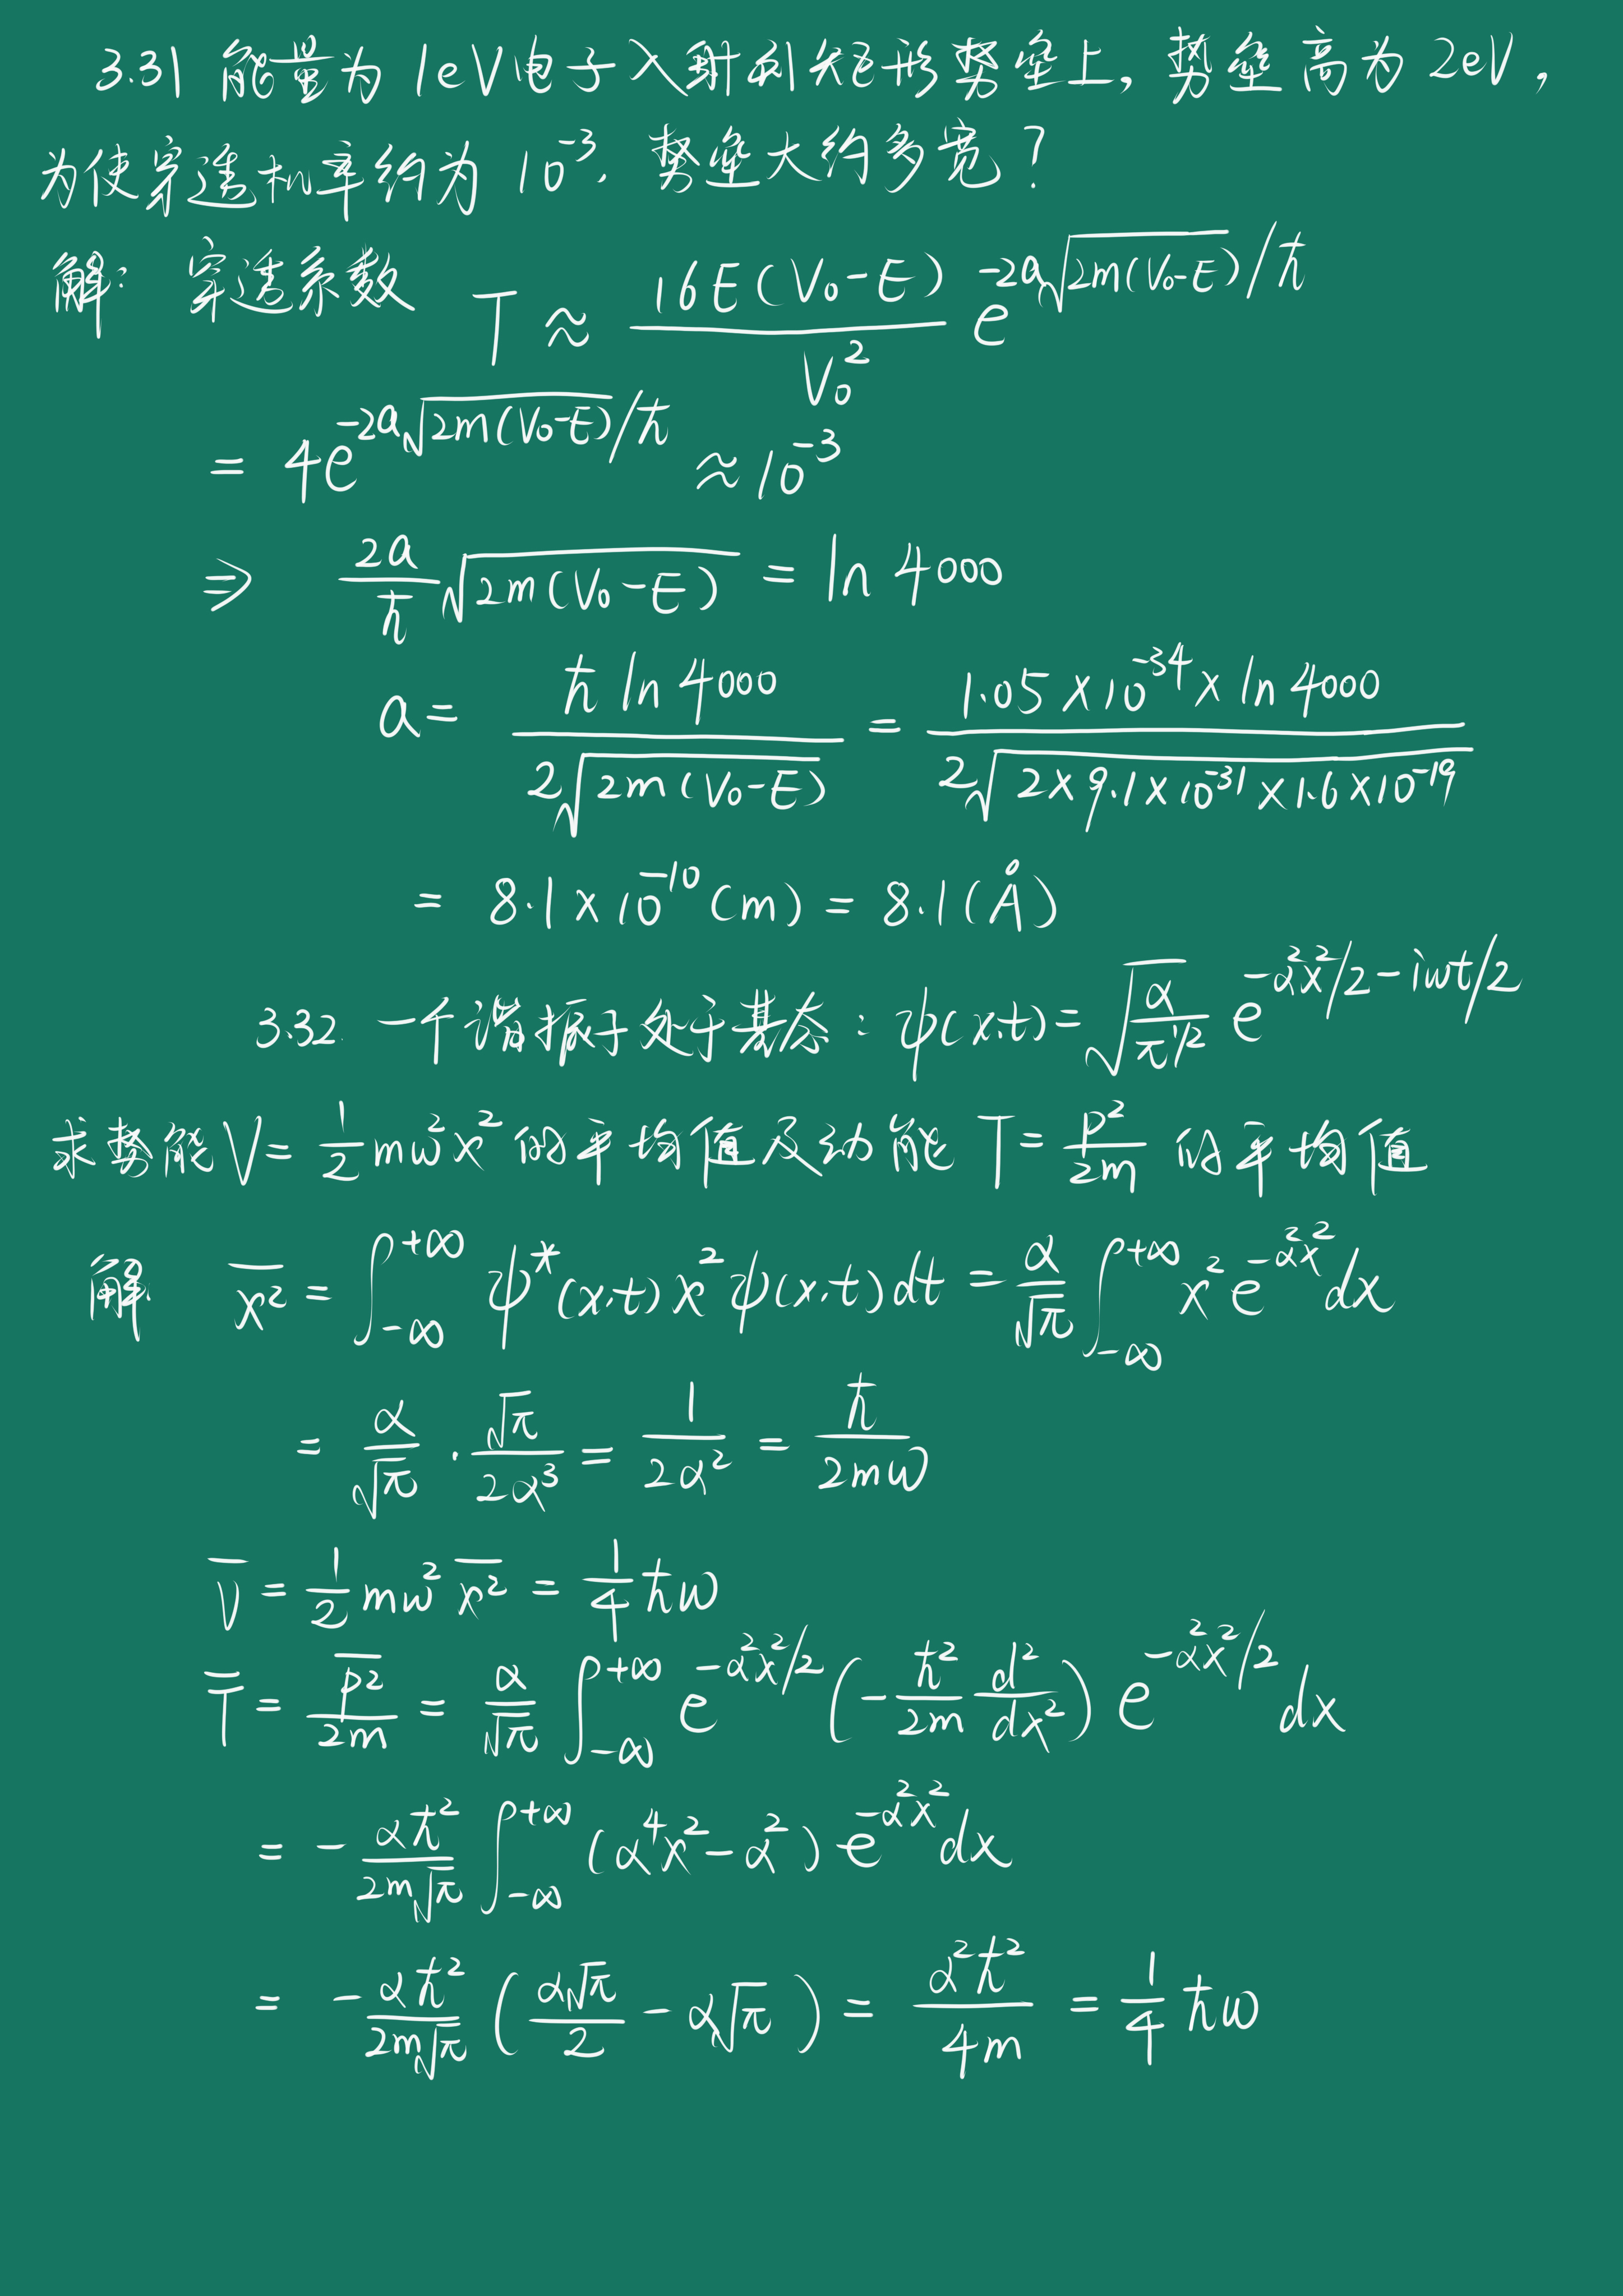 3.31 能量为 1eV电子入射到矩形势垒上, 势垒高为 2eV,
为使穿透机率约为 10⁻³, 势垒大约多宽?
解: 穿透系数 T ≈ \frac{16E(V₀-E)}{V₀²} e^{-2a\sqrt{2m(V₀-E)}/ħ}
= 4e^{-2a\sqrt{2m(V₀-E)}/ħ} ≈ 10⁻³
⇒ \frac{2a}{ħ}\sqrt{2m(V₀-E)} = ln 4000
a = \frac{ħ ln 4000}{2\sqrt{2m(V₀-E)}} = \frac{1.05×10⁻³⁴× ln 4000}{2\sqrt{2×9.1×10⁻³¹×1.6×10⁻¹⁹}}
= 8.1×10⁻¹⁰(m) = 8.1(Å)
3.32. 一个谐振子处于基态: ψ(x,t) = \sqrt{\frac{α}{π^{1/2}}} e^{-α²x²/2-iωt/2}
求势能 V = \frac{1}{2}mω²x² 的平均值及动能 T = \frac{p²}{2m} 的平均值
解 \overline{x²} = ∫_{-∞}^{+∞} ψ*(x,t) x² ψ(x,t) dt = \frac{α}{\sqrt{π}} ∫_{-∞}^{+∞} x² e^{-α²x²} dx
= \frac{α}{\sqrt{π}} · \frac{\sqrt{π}}{2α³} = \frac{1}{2α²} = \frac{ħ}{2mω}
\overline{V} = \frac{1}{2}mω²\overline{x²} = \frac{1}{4}ħω
\overline{T} = \frac{\overline{p²}}{2m} = \frac{α}{\sqrt{π}} ∫_{-∞}^{+∞} e^{-α²x²/2} (-\frac{ħ²}{2m}\frac{d²}{dx²}) e^{-α²x²/2} dx
= -\frac{αħ²}{2m\sqrt{π}} ∫_{-∞}^{+∞} (α⁴x²-α²) e^{-α²x²} dx
= -\frac{αħ²}{2m\sqrt{π}} (\frac{α\sqrt{π}}{2} - α\sqrt{π}) = \frac{α²ħ²}{4m} = \frac{1}{4}ħω